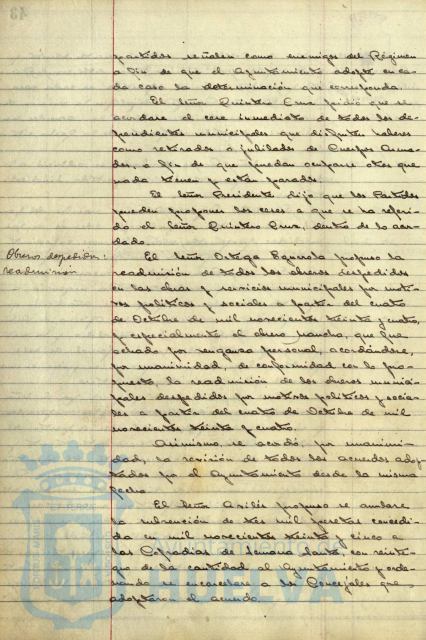 partidos señalen como enemigos del Régimen
a fin de que el Ayuntamiento adopte en ca-
da caso la determinación que corresponda.
El Señor Quintero Cruz pidió que se
acordase el cese inmediato de todos los de-
pendientes municipales que disfruten haberes
como retirados o jubilados de Cuerpos Arma-
dos, a fin de que puedan ocuparse otros que
nada tienen y están parados.
El Señor Presidente dijo que los Partidos
pueden proponer los ceses a que se ha referi-
do el Señor Quintero Cruz, dentro de lo acor-
dado.
Obreros despedidos:
readmisión
El Señor Ortega propuso la
readmisión de todos los obreros despedidos
en las obras y servicios municipales por moti-
vos políticos y sociales a partir del cuatro
de Octubre de mil novecientos treinta y cuatro,
y especialmente al obrero que fue
echado por venganza personal, acordándose,
por unanimidad, de conformidad con lo pro-
puesto, la readmisión de los obreros munici-
pales despedidos por motivos políticos y socia-
les a partir del cuatro de Octubre de mil
novecientos treinta y cuatro.
Asimismo, se acordó, por unanimi-
dad, la revisión de todos los acuerdos adop-
tados por el Ayuntamiento desde la misma
fecha.
El Señor Avilés propuso se anulara
la subvención de tres mil pesetas concedi-
da en mil novecientos treinta y cinco a
las Cofradías de Semana Santa, con reinte-
gro de la cantidad al Ayuntamiento y orde-
nando se encarcelare a los Concejales que
adoptaron el acuerdo.